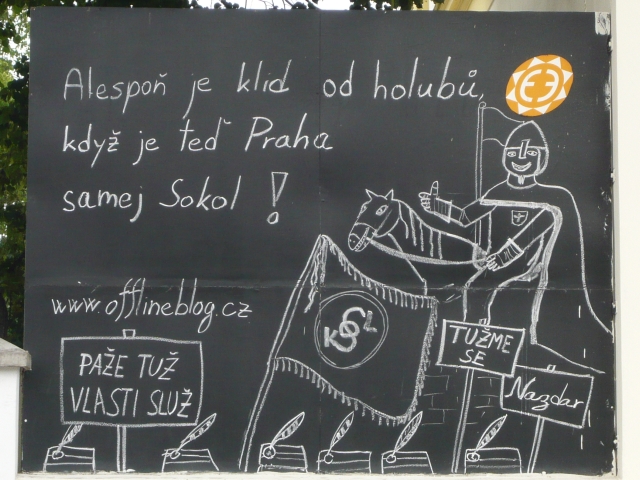 Alespoň je klid od holubů,
když je teď Praha
samej Sokol!
www.offlineblog.cz
PAŽE TUŽ
VLASTI SLUŽ
TUŽME
SE
Nazdar